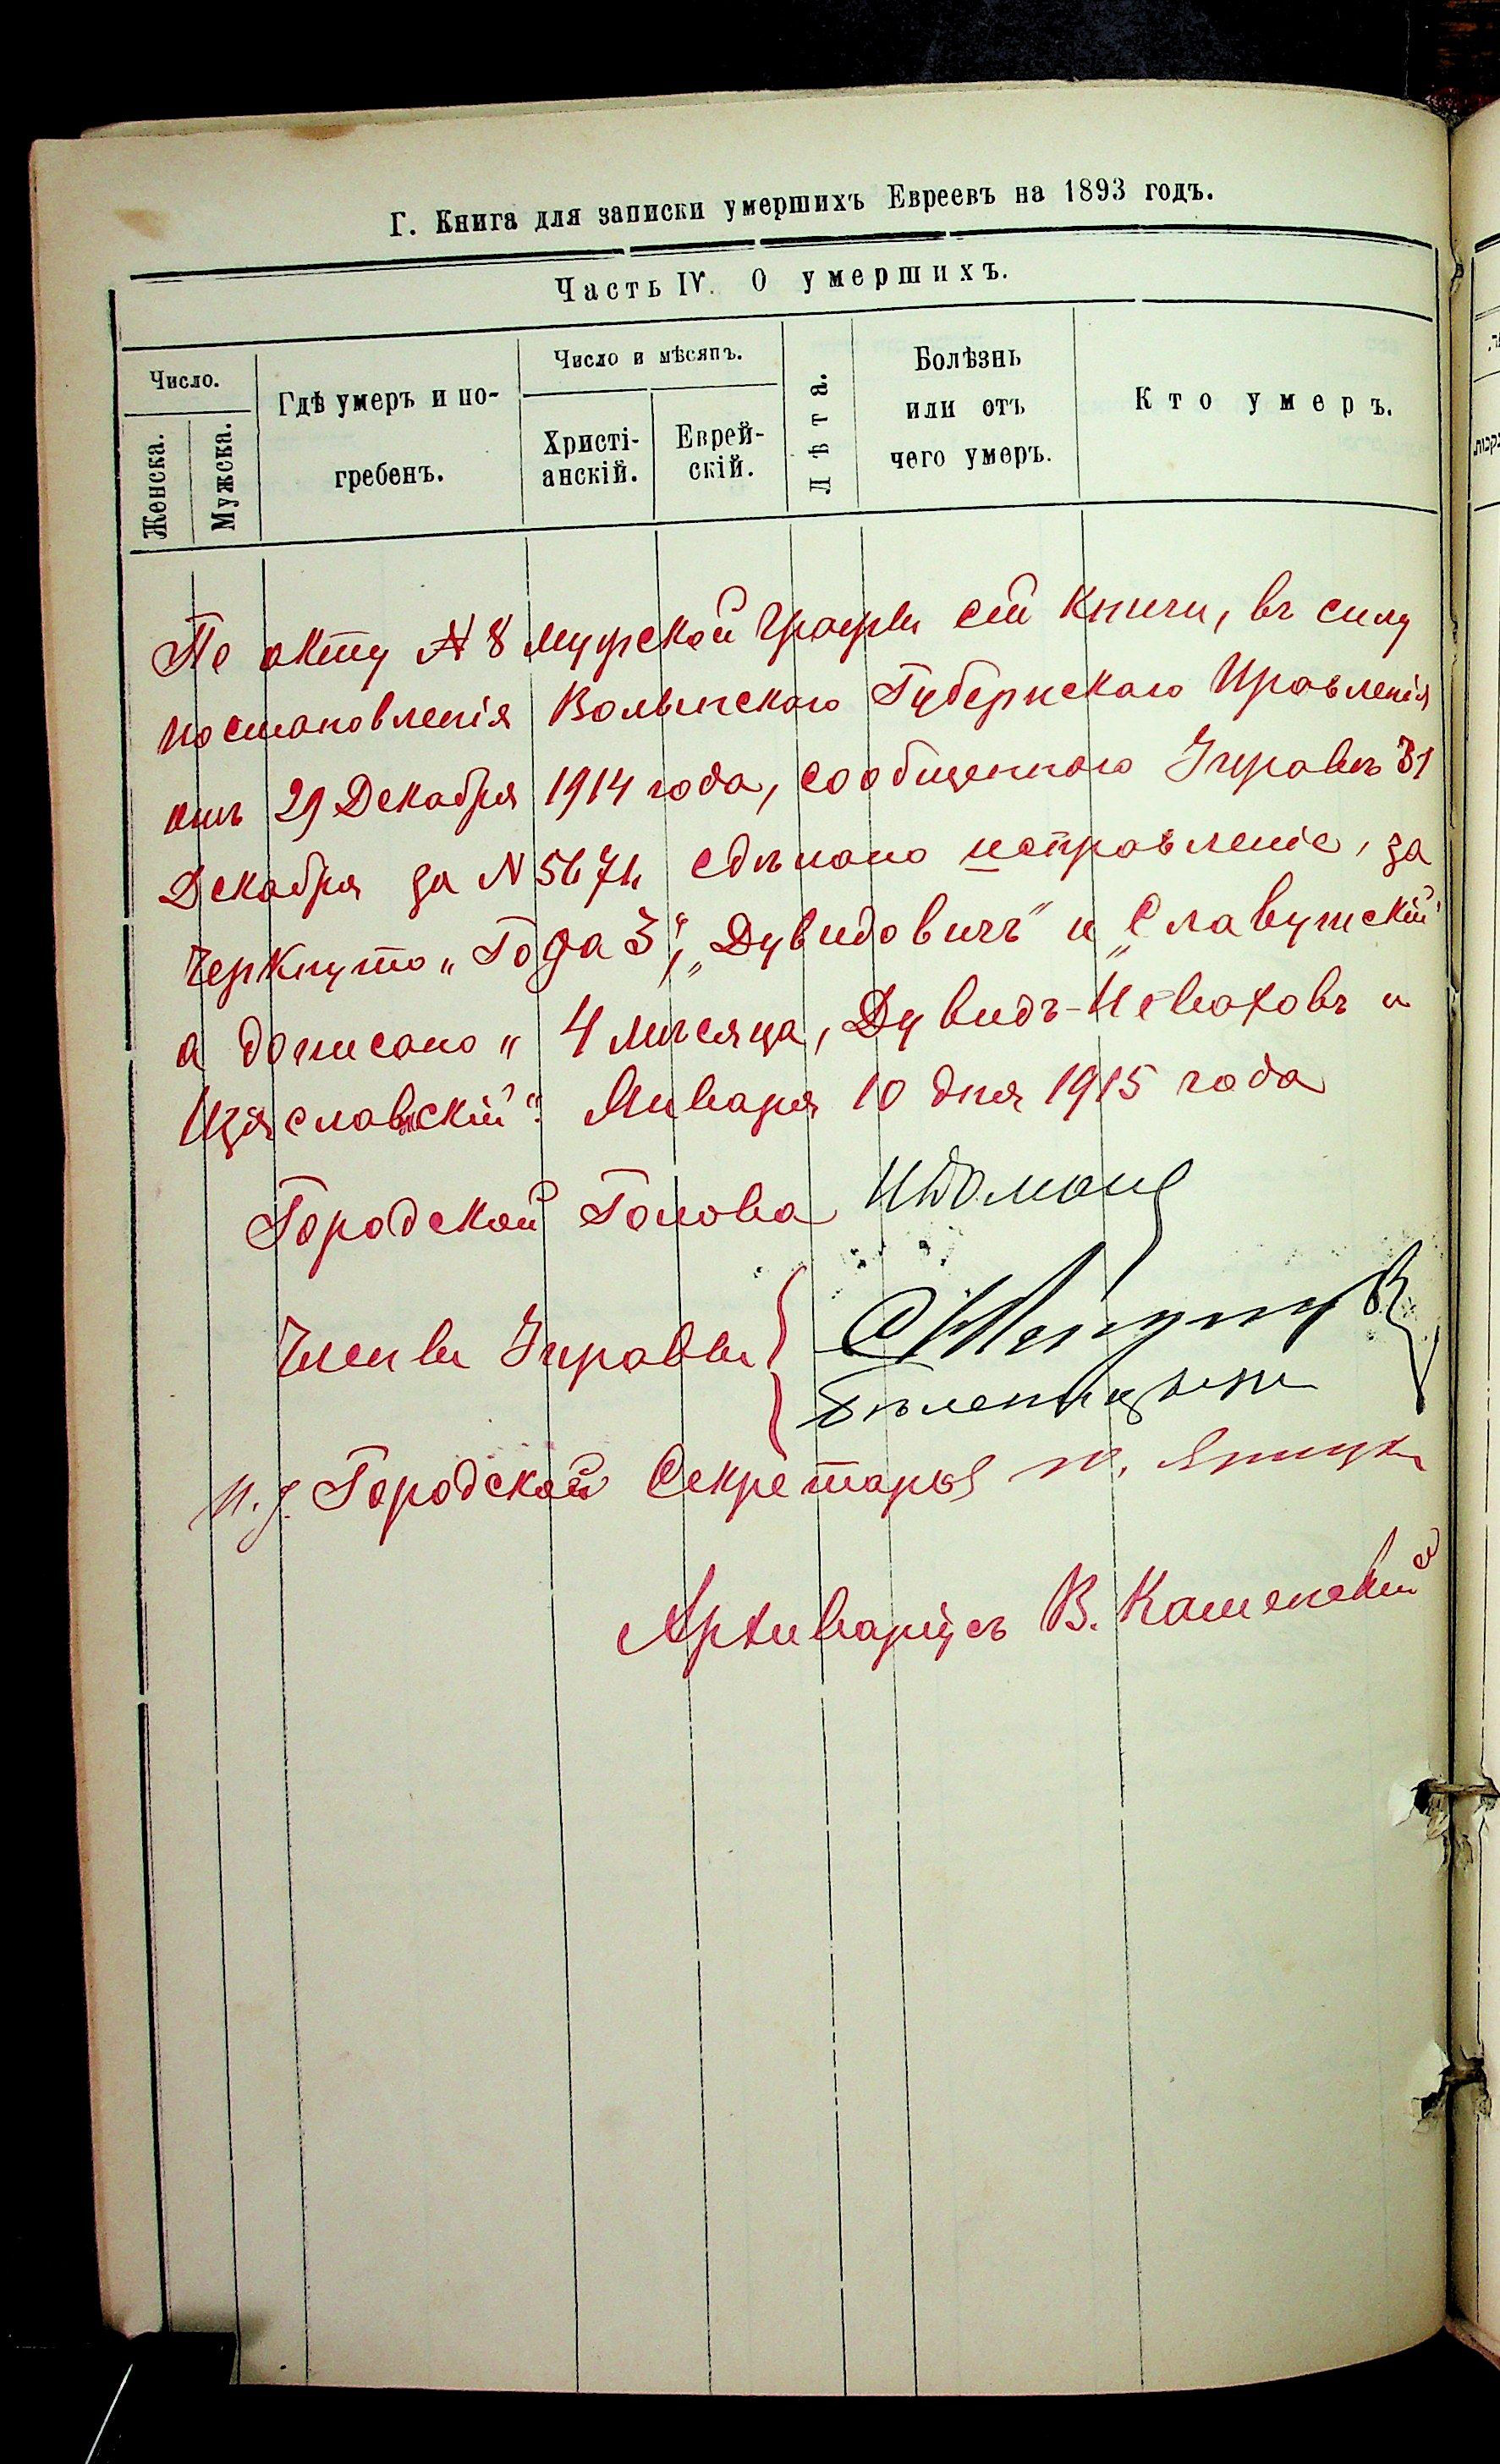 Г. Книга для записки умершихъ Евреевъ на 1893 годъ.
Часть IV. О умершихъ.
Число.
Женска.
Мужска.
Гдѣ умеръ и по-
гребенъ.
Число и мѣсяцъ.
Христі-
анскій.
Еврей-
скій.
Лѣта.
Болѣзнь
или отъ
чего умеръ.
Кто умеръ.
По акту № 8 мужской графы сей книги, въ силу
постановленія Волынскаго Губернскаго Правленія
отъ 29 Декабря 1914 года, сообщеннаго Управѣ 31
Декабря за N 5671, сдѣлано исправленіе, за
черкнуто „Года 3“, „Дувидовичъ“ и „Славутскій“
а дописано „4 мѣсяца, Дувидъ-Ицковъ и
Изяславскій“. Января 10 дня 1915 года
Городской Голова
Члены Управы
И.д. Городской Секретаря
Архиваріусъ В. Каменскій